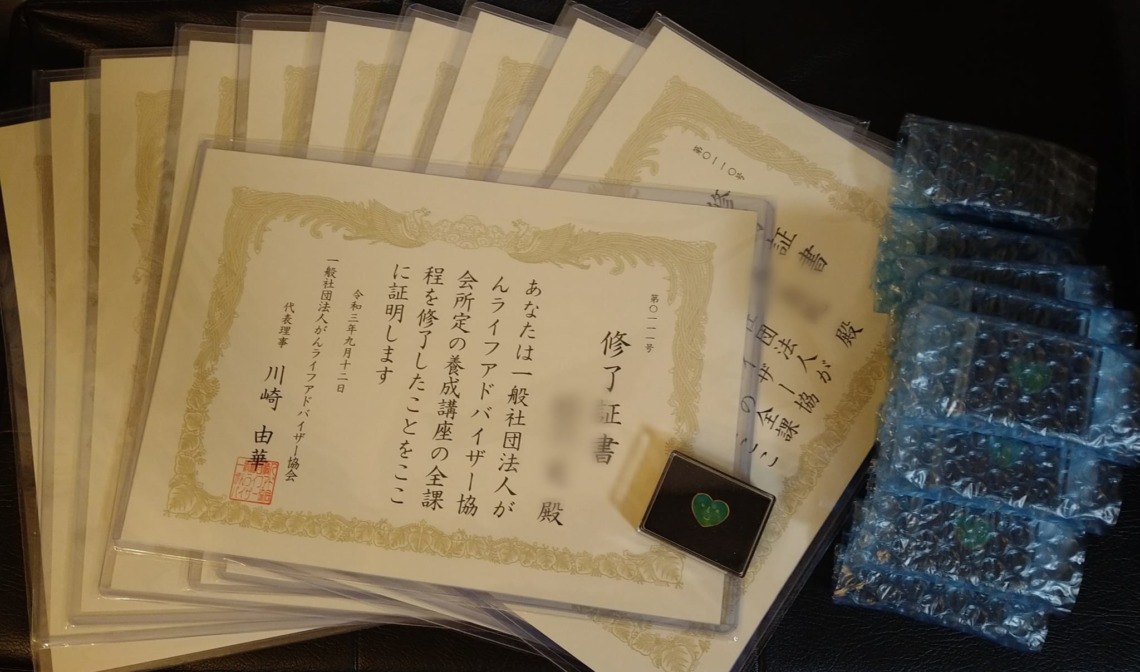 第〇一一一号
修了証書
殿
あなたは一般社団法人が
んライフアドバイザー協
会所定の養成講座の全課
程を修了したことをここ
に証明します
令和三年九月十二日
一般社団法人がんライフアドバイザー協会
代表理事 川崎 由華
第〇一一〇号
修
証書
殿
団法人が
ザー協
の全課
ここ